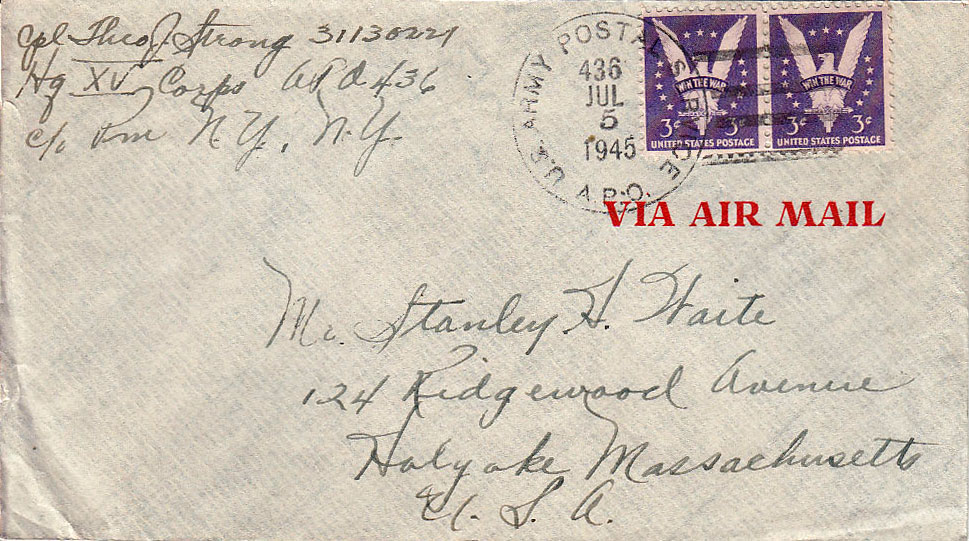 Cpl. Theo J. Strong 31130221
Hq XV Corps APO 436
c/o Pm N.Y., N.Y.
U.S. ARMY POSTAL SERVICE
436
JUL
5
1945
A.P.O.
WIN THE WAR
3¢ 3¢
UNITED STATES POSTAGE
WIN THE WAR
3¢ 3¢
UNITED STATES POSTAGE
VIA AIR MAIL
Mr. Stanley H. Waite
124 Ridgewood Avenue
Holyoke Massachusetts
U. S. A.